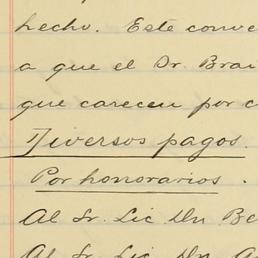 hecho. Este conve
a que el Dr. Bra
que carecen por c
Diversos pagos.
Por honorarios.
Al Sr. Lic. Dn. Be
Al Sr. Lic. Dn. A